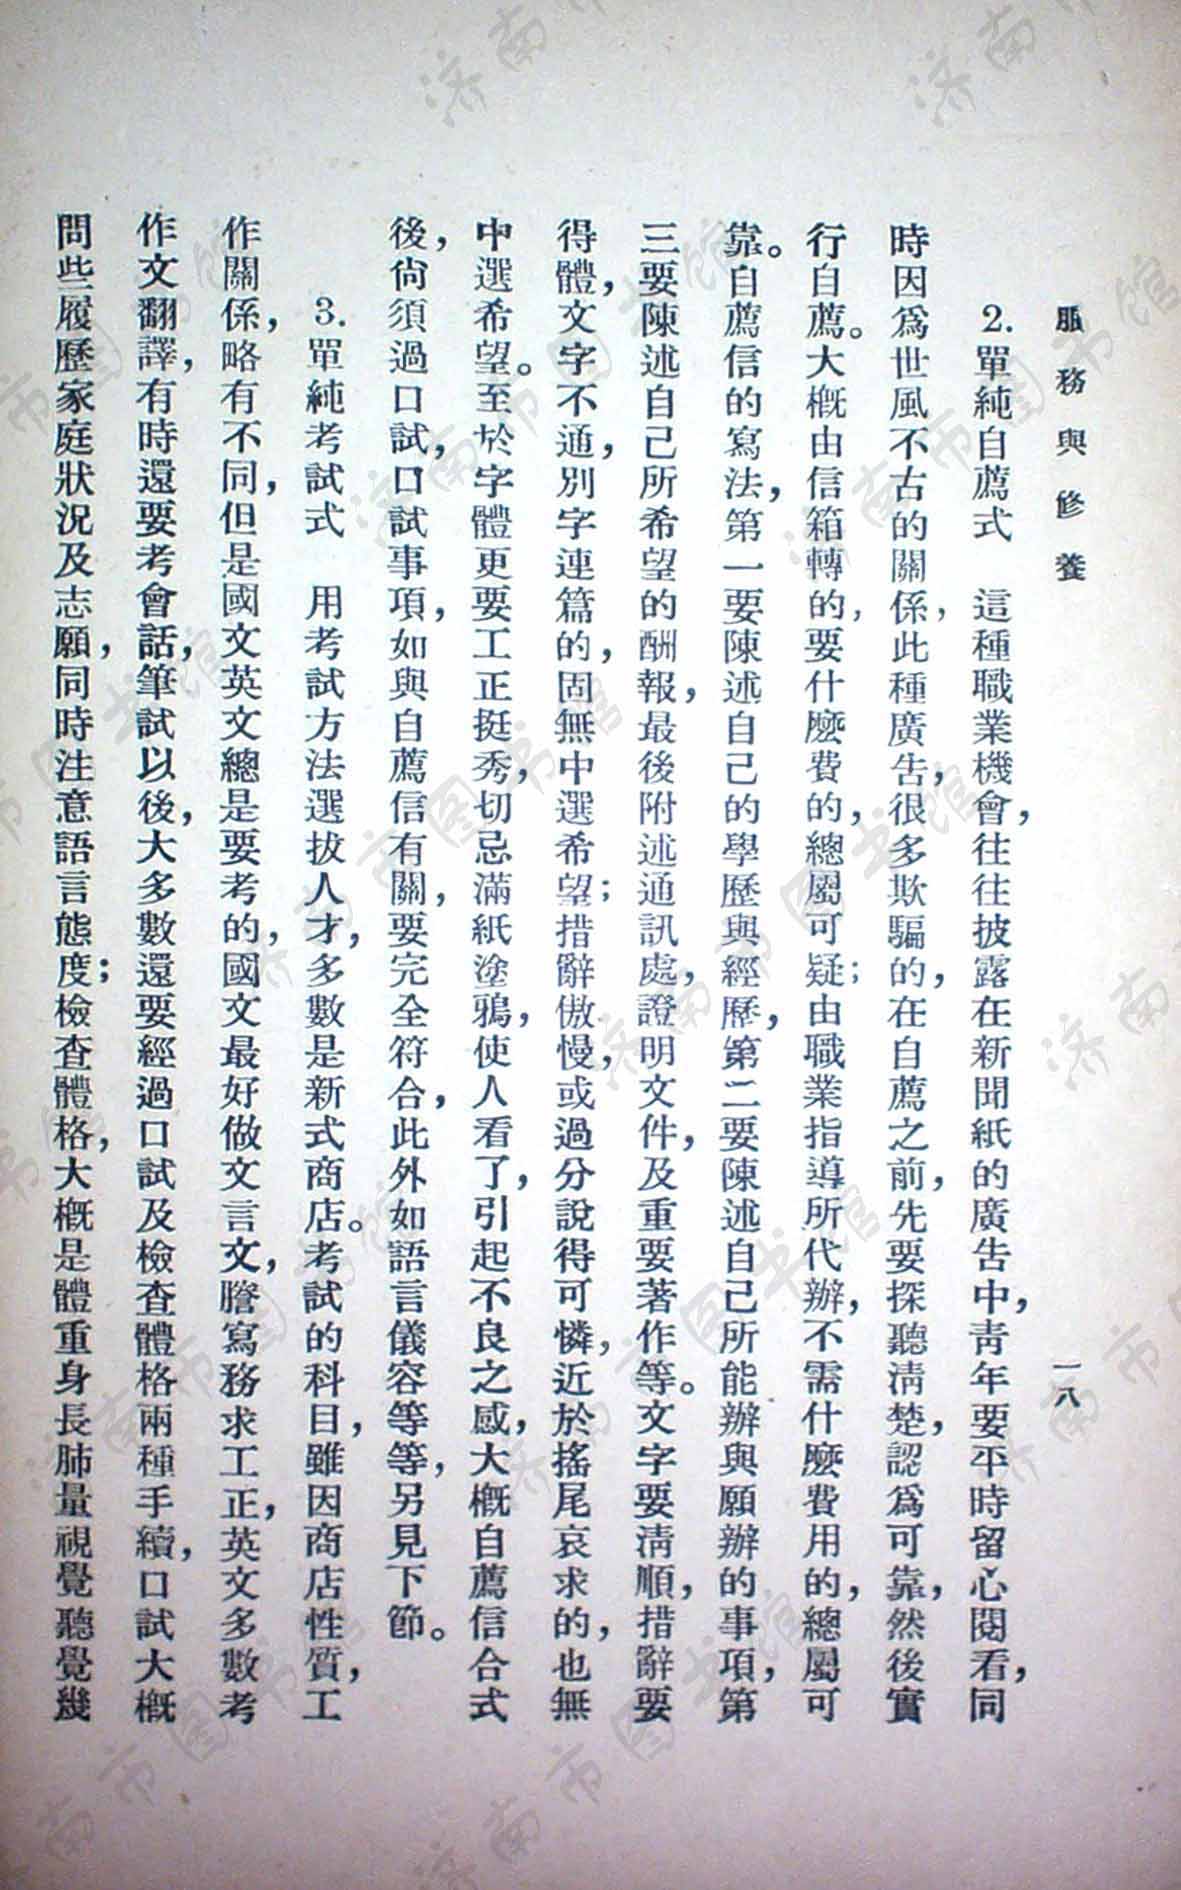 服務與修養
一八
2.單純自薦式　這種職業機會,往往披露在新聞紙的廣告中,青年要平時留心閱看,同
時因爲世風不古的關係,此種廣告,很多欺騙的,在自薦之前,先要探聽清楚,認爲可靠,然後實
行自薦。大槪由信箱轉的,要什麽費的,總屬可疑;由職業指導所代辦,不需什麽費用的,總屬可
靠。自薦信的寫法,第一要陳述自己的學歷與經歷,第二要陳述自己所能辦與願辦的事項,第
三要陳述自己所希望的酬報,最後附述通訊處,證明文件,及重要著作等。文字要清順,措辭要
得體,文字不通,別字連篇的,固無中選希望;措辭傲慢,或過分說得可憐,近於搖尾哀求的,也無
中選希望。至於字體更要工正挺秀,切忌滿紙塗鴉,使人看了,引起不良之感,大槪自薦信合式
後,尙須過口試,口試事項,如與自薦信有關,要完全符合,此外如語言儀容等等,另見下節。
3.單純考試式　用考試方法選拔人才,多數是新式商店。考試的科目,雖因商店性質,工
作關係,略有不同,但是國文英文總是要考的,國文最好做文言文,謄寫務求工正,英文多數考
作文翻譯,有時還要考會話,筆試以後,大多數還要經過口試及檢查體格兩種手續,口試大槪
問些履歷家庭狀況及志願,同時注意語言態度;檢查體格,大槪是體重身長肺量視覺聽覺幾
济南市图书馆